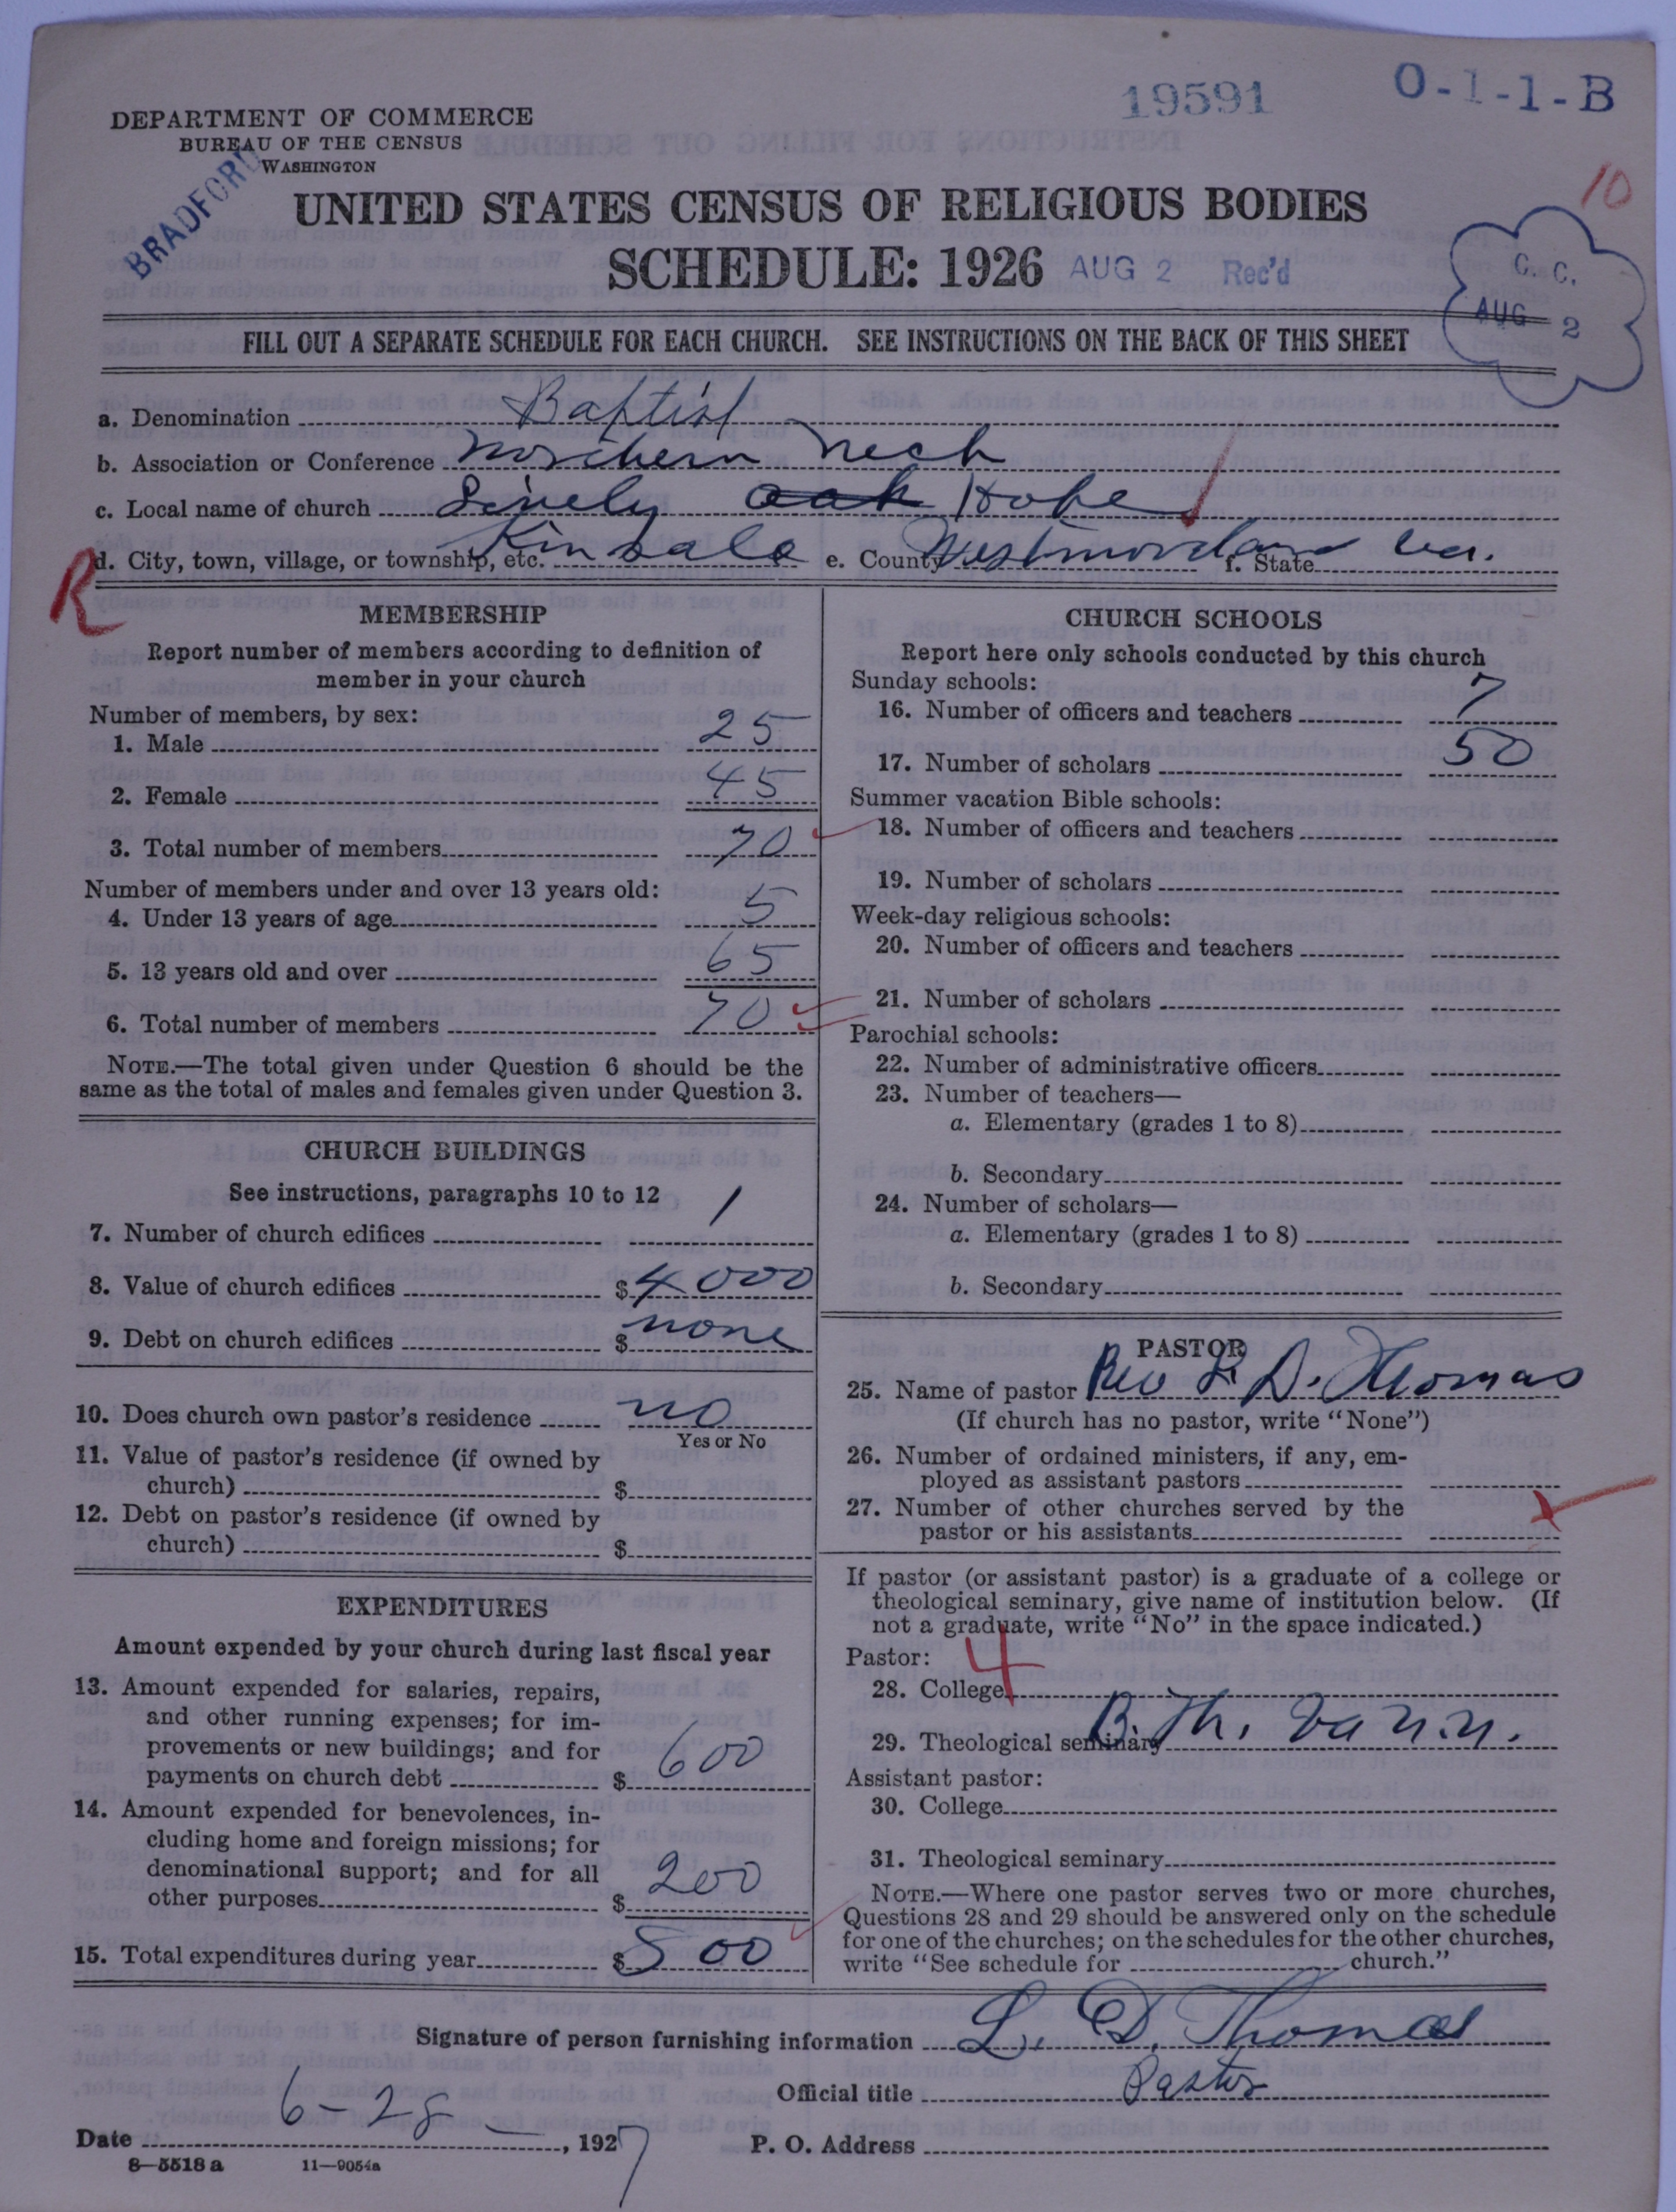 19591 O-1-1-B
DEPARTMENT OF COMMERCE
BUREAU OF THE CENSUS
WASHINGTON
BRADFORD
10
UNITED STATES CENSUS OF RELIGIOUS BODIES
SCHEDULE: 1926 AUG 2 Rec'd
C. C.
AUG 2
FILL OUT A SEPARATE SCHEDULE FOR EACH CHURCH. SEE INSTRUCTIONS ON THE BACK OF THIS SHEET
a. Denomination Baptist
b. Association or Conference Northern Neck
c. Local name of church Lively oak Hope
R
d. City, town, village, or township, etc. Kinsale e. County Westmoreland f. State Va.
MEMBERSHIP
Report number of members according to definition of
member in your church
Number of members, by sex:
1. Male 25
2. Female 45
3. Total number of members 70
Number of members under and over 13 years old:
4. Under 13 years of age 5
5. 13 years old and over 65
6. Total number of members 70
NOTE.—The total given under Question 6 should be the
same as the total of males and females given under Question 3.
CHURCH BUILDINGS
See instructions, paragraphs 10 to 12
7. Number of church edifices 1
8. Value of church edifices $4000
9. Debt on church edifices $ none
10. Does church own pastor's residence no
Yes or No
11. Value of pastor's residence (if owned by
church) $
12. Debt on pastor's residence (if owned by
church) $
EXPENDITURES
Amount expended by your church during last fiscal year
13. Amount expended for salaries, repairs,
and other running expenses; for im-
provements or new buildings; and for
payments on church debt $ 600
14. Amount expended for benevolences, in-
cluding home and foreign missions; for
denominational support; and for all
other purposes $ 200
15. Total expenditures during year $ 800
CHURCH SCHOOLS
Report here only schools conducted by this church
Sunday schools:
16. Number of officers and teachers 7
17. Number of scholars 50
Summer vacation Bible schools:
18. Number of officers and teachers
19. Number of scholars
Week-day religious schools:
20. Number of officers and teachers
21. Number of scholars
Parochial schools:
22. Number of administrative officers
23. Number of teachers—
a. Elementary (grades 1 to 8)
b. Secondary
24. Number of scholars—
a. Elementary (grades 1 to 8)
b. Secondary
PASTOR
25. Name of pastor Rev L. D. Thomas
(If church has no pastor, write "None")
26. Number of ordained ministers, if any, em-
ployed as assistant pastors
27. Number of other churches served by the
pastor or his assistants
If pastor (or assistant pastor) is a graduate of a college or
theological seminary, give name of institution below. (If
not a graduate, write "No" in the space indicated.)
Pastor:
28. College 4
29. Theological seminary B. Th. Va
Assistant pastor:
30. College
31. Theological seminary
NOTE.—Where one pastor serves two or more churches,
Questions 28 and 29 should be answered only on the schedule
for one of the churches; on the schedules for the other churches,
write "See schedule for church."
Signature of person furnishing information L. D. Thomas
Official title Pastor
Date 6-28-, 1927 P. O. Address
8—5518 a 11—9054a